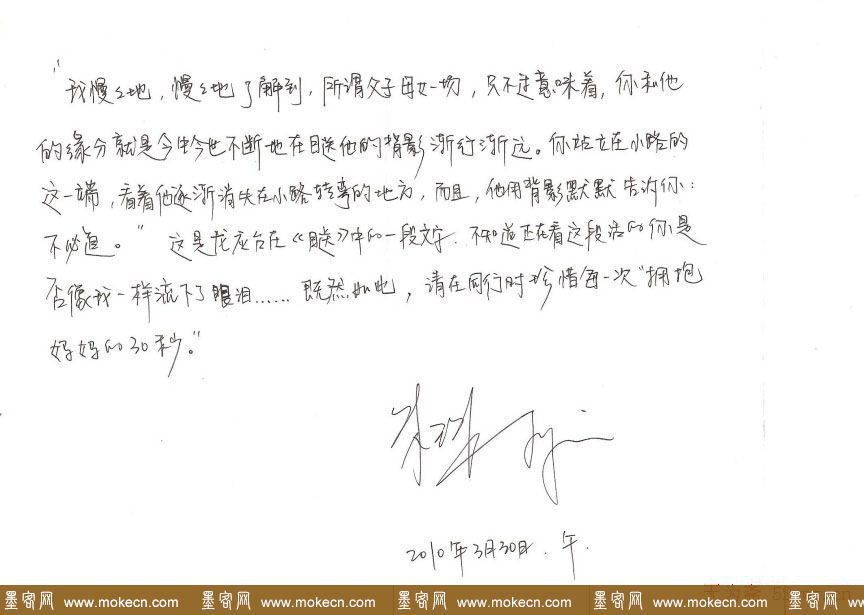 "我慢慢地，慢慢地了解到，所谓父子母女一场，只不过意味着，你和他
的缘分就是今生今世不断地在目送他的背影渐行渐远。你站立在小路的
这一端，看着他逐渐消失在小路转弯的地方，而且，他用背影默默告诉你：
不必追。" 这是龙应台在《目送》中的一段文字．不知道正在看这段话的你是
否像我一样流下了眼泪……既然如此，请在同行时珍惜每一次"拥抱
妈妈的30秒。"
2010年3月30日．午．
墨客网 www.mokecn.com 墨客网 www.mokecn.com 墨客网 www.mokecn.com 墨客网 www.mokecn.com 墨客网 w